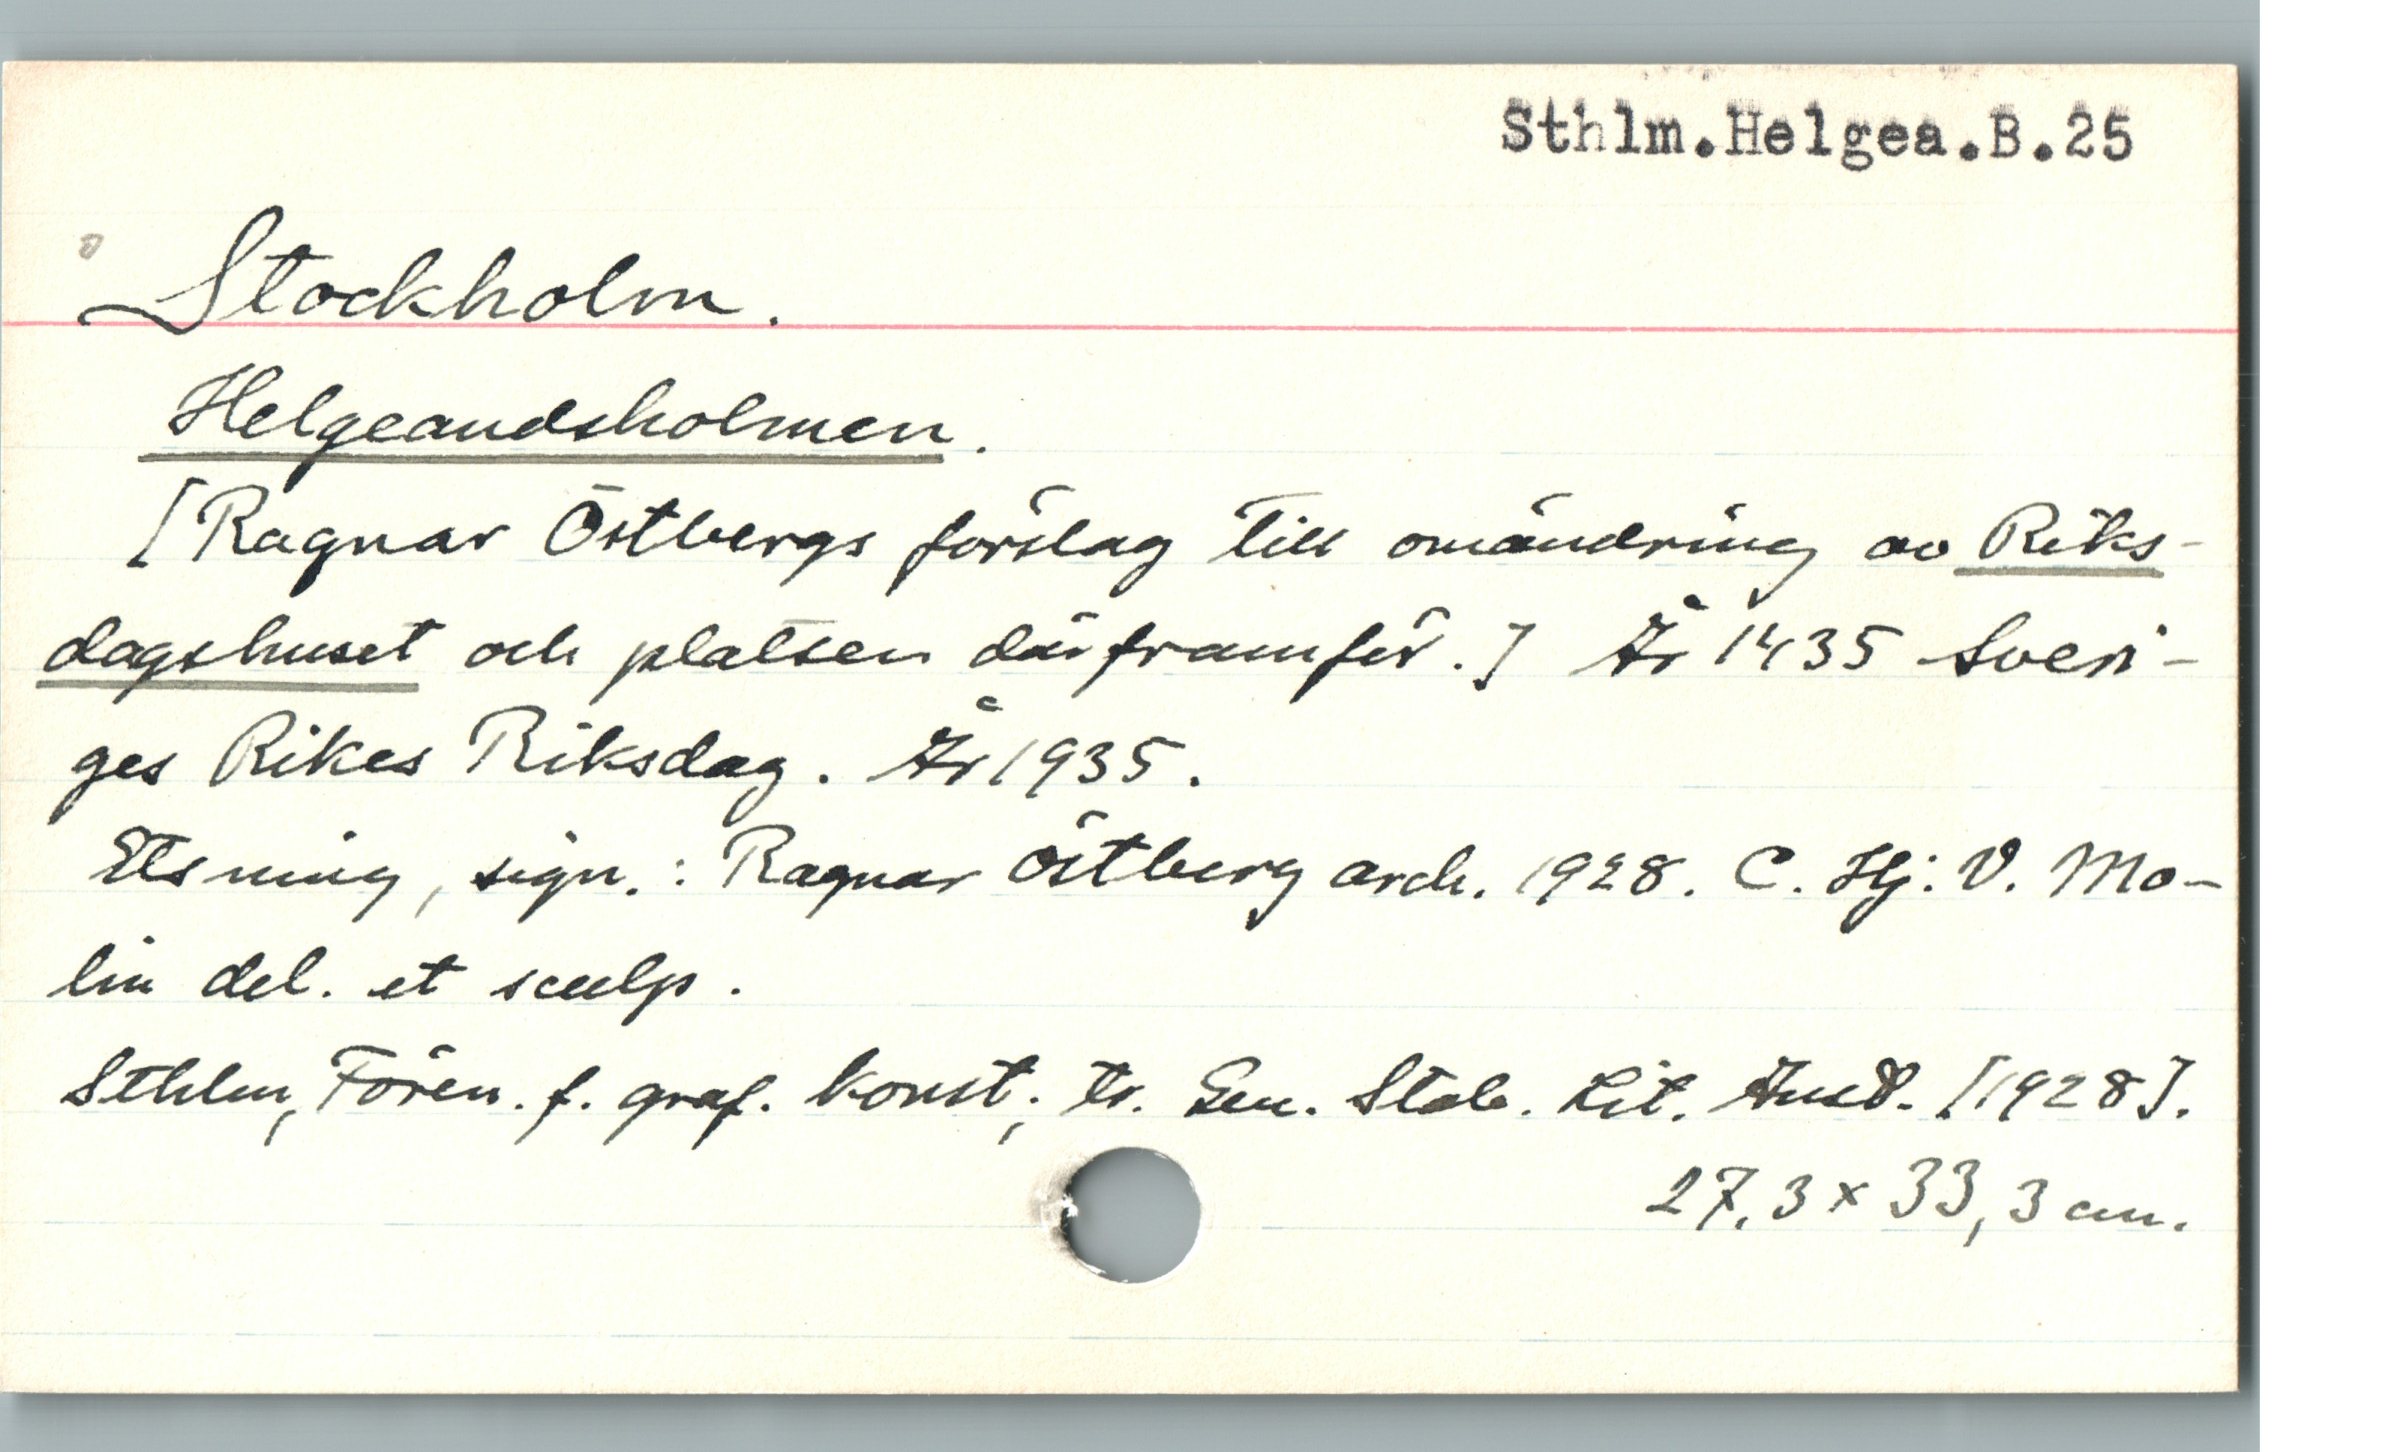 Sthlm.Helgea.B.25
Stockholm.
Helgeandsholmen.
[Ragnar Östbergs förslag till omändring av Riks-
dagshuset och platsen därframför.] År 1435 Sveri-
ges Rikes Riksdag. År 1935.
Etsning, sign.: Ragnar Östberg arch. 1928. C. Hj. V. Mo-
lin del. et sculp.
Sthlm, Fören. f. graf. konst; tr. Gen. Stab. Lit. Anst. [1928].
27,3 x 33,3 cm.